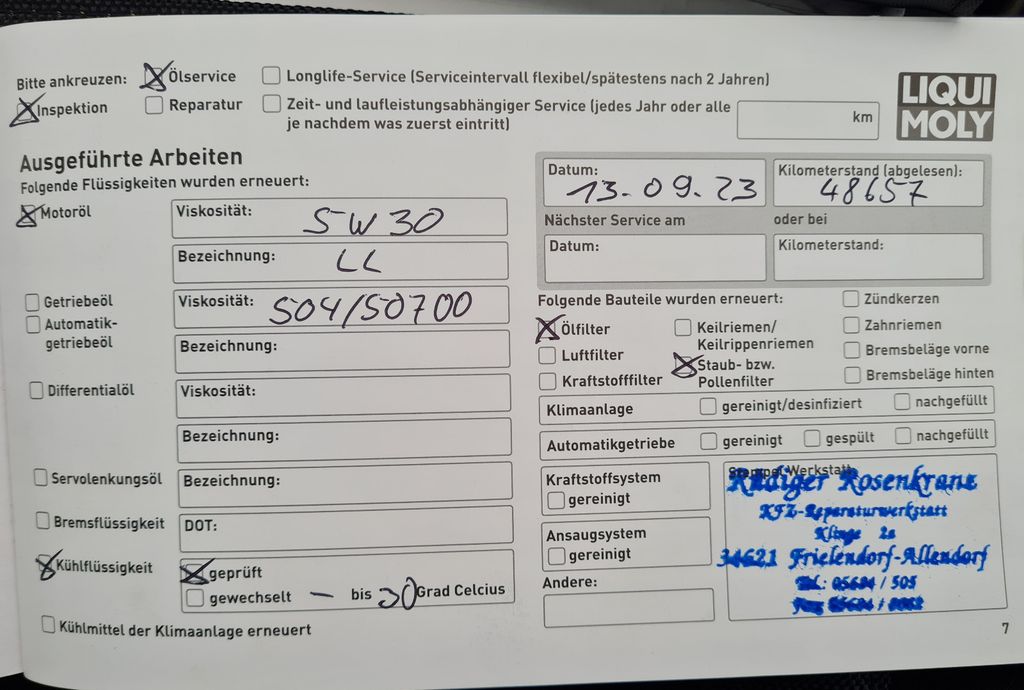 Bitte ankreuzen: Ölservice Longlife-Service (Serviceintervall flexibel/spätestens nach 2 Jahren)
Inspektion Reparatur Zeit- und laufleistungsabhängiger Service (jedes Jahr oder alle km
je nachdem was zuerst eintritt)
LIQUI
MOLY
Ausgeführte Arbeiten
Folgende Flüssigkeiten wurden erneuert:
Motoröl Viskosität: 5W30
Bezeichnung: LL
Getriebeöl Viskosität: 504/50700
Automatik-
getriebeöl
Bezeichnung:
Differentialöl Viskosität:
Bezeichnung:
Servolenkungsöl Bezeichnung:
Bremsflüssigkeit DOT:
Kühlflüssigkeit geprüft
gewechselt – bis 30 Grad Celcius
Kühlmittel der Klimaanlage erneuert
Datum: 13.09.23 Kilometerstand (abgelesen): 48657
Nächster Service am oder bei
Datum: Kilometerstand:
Folgende Bauteile wurden erneuert: Zündkerzen
Ölfilter Keilriemen/ Zahnriemen
Keilrippenriemen
Luftfilter Staub- bzw. Bremsbeläge vorne
Kraftstofffilter Pollenfilter Bremsbeläge hinten
Klimaanlage gereinigt/desinfiziert nachgefüllt
Automatikgetriebe gereinigt gespült nachgefüllt
Kraftstoffsystem
gereinigt
Ansaugsystem
gereinigt
Andere:
Stempel Werkstatt
Rüdiger Rosenkranz
KFZ-Reparaturwerkstatt
Klinge 2a
34621 Frielendorf-Allendorf
Tel.: 05684 / 505
Fax 05684 /
7